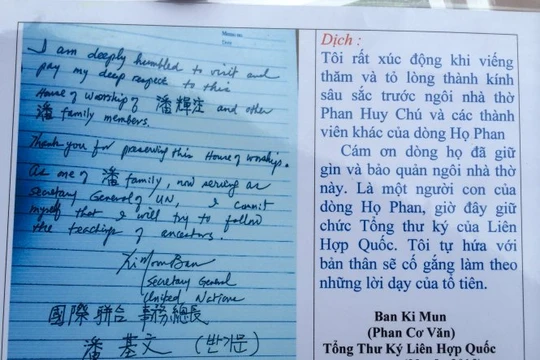 I am deeply humbled to visit and
pay my deep respect to this
House of worship of 潘輝注 and other
潘 family members.
Thank you for preserving this House of worship.
As one of 潘 family, now serving as
Secretary General of UN, I commit
myself that I will try to follow
the teachings of ancestors.
Ki Moon Ban
Secretary General
United Nations
國際聯合 事務總長
潘 基文 (반기문)
Dịch :
Tôi rất xúc động khi viếng
thăm và tỏ lòng thành kính
sâu sắc trước ngôi nhà thờ
Phan Huy Chú và các thành
viên khác của dòng Họ Phan
Cám ơn dòng họ đã giữ
gìn và bảo quản ngôi nhà thờ
này. Là một người con của
dòng Họ Phan, giờ đây giữ
chức Tổng thư ký của Liên
Hợp Quốc. Tôi tự hứa với
bản thân sẽ cố gắng làm theo
những lời dạy của tổ tiên.
Ban Ki Mun
(Phan Cơ Văn)
Tổng Thư Ký Liên Hợp Quốc